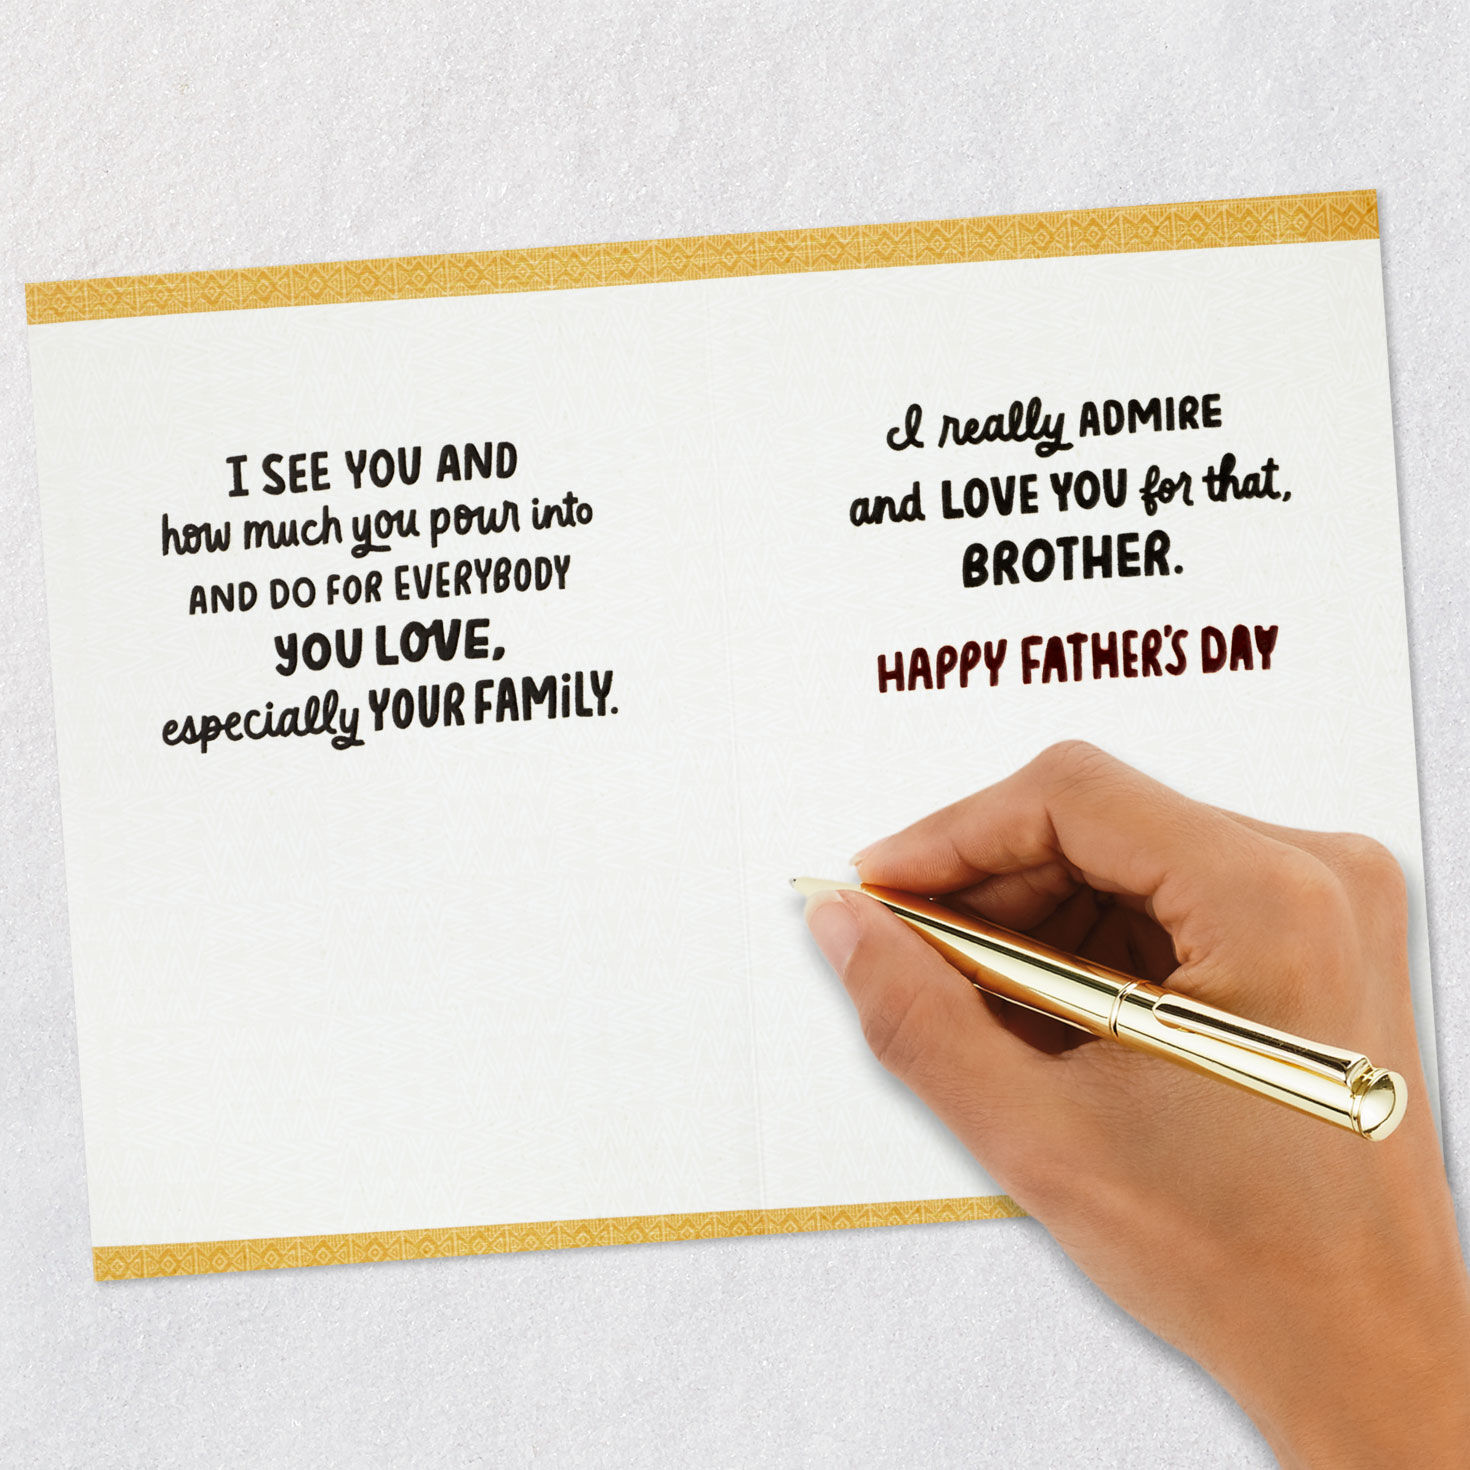 I SEE YOU AND
how much you pour into
AND DO FOR EVERYBODY
YOU LOVE,
especially YOUR FAMiLY.
I really ADMIRE
and LOVE YOU for that,
BROTHER.
HAPPY FATHER'S DAY